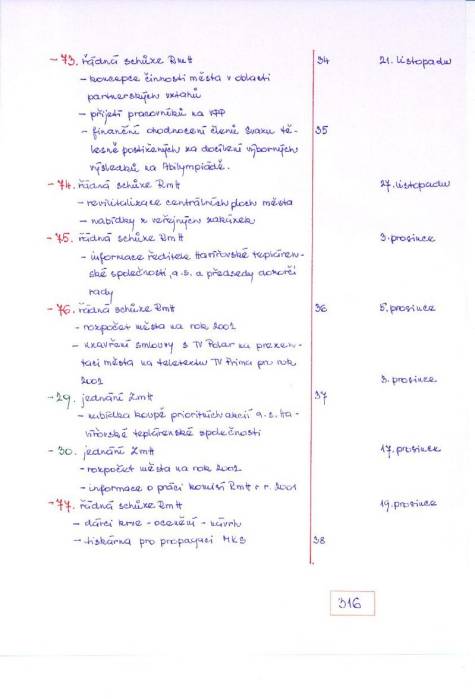 - 73. řádná schůze RmH 34 21. listopadu
- koncepce činnosti města v oblasti
partnerských vztahů
- přijetí pracovníků na VPP
- finanční ohodnocení členů Svazu tě- 35
lesně postižených za docílení výborných
výsledků na Abilympiádě.
- 74. řádná schůze RmH 27. listopadu
- revitalizace centrálních ploch města
- nabídky z veřejných zakázek
- 75. řádná schůze RmH 3. prosince
- informace ředitele Havířovské tepláren-
ské společnosti, a.s. a předsedy dozorčí
rady
- 76. řádná schůze RmH 36 5. prosince
- rozpočet města na rok 2002
- uzavření smlouvy s TV Polar na prezen-
taci města na teletextu TV Prima pro rok
2002 3. prosince
- 29. jednání ZmH 37
- nabídka koupě prioritních akcií a.s. Ha-
vířovské teplárenské společnosti
- 30. jednání ZmH 17. prosince
- rozpočet města na rok 2002
- informace o práci komisí RmH r. 2001
- 77. řádná schůze RmH 19. prosince
- dárci krve - ocenění - návrh
- tiskárna pro propagaci MKS 38
316